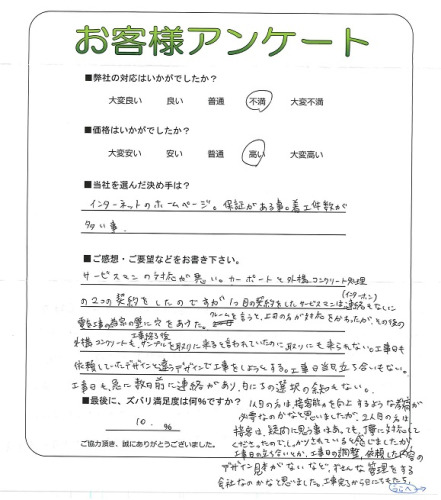 お客様アンケート
■弊社の対応はいかがでしたか？
大変良い 良い 普通 不満 大変不満
■価格はいかがでしたか？
大変安い 安い 普通 高い 大変高い
■当社を選んだ決め手は？
インターネットのホームページ。保証がある事。着工件数が
多い事。
■ご感想・ご要望などをお書き下さい。
サービスマンの対応が悪い。カーポートと外構コンクリート処理
(インターホン)
の2つの契約をしたのですが1つ目の契約をしたサービスマンは連絡もなしに
電気工事の為家の壁に穴をあけた。クレームを言うと、上司の方が対応をかわったが、その後の
工事終了後
外構コンクリートも、サンプルを取りに来ると言われていたのに取りにも来られない。工事日も
依頼していたデザインと違うデザインで工事をしようとする。工事日当日立ち合いもない。
工事日も、急に数日前に連絡があり、日にちの選択の余地もない。
■最後に、ズバリ満足度は何%ですか？
10.%
ご協力頂き、誠にありがとうございました。
1人目の方は、接客能力を向上するような教育が
必要なのかなと思いましたが、2人目の方は、
接客は、疑問に思う事はあっても、丁寧に対応して
くださったのでしっかりされていると感じましたが
工事日の立ち合いとか、工事日の調整、依頼した内容の
デザイン見本がないなど、ずさんな管理をする
会社なのかなと思いました。工事完了から日にちもたち、
うらへ